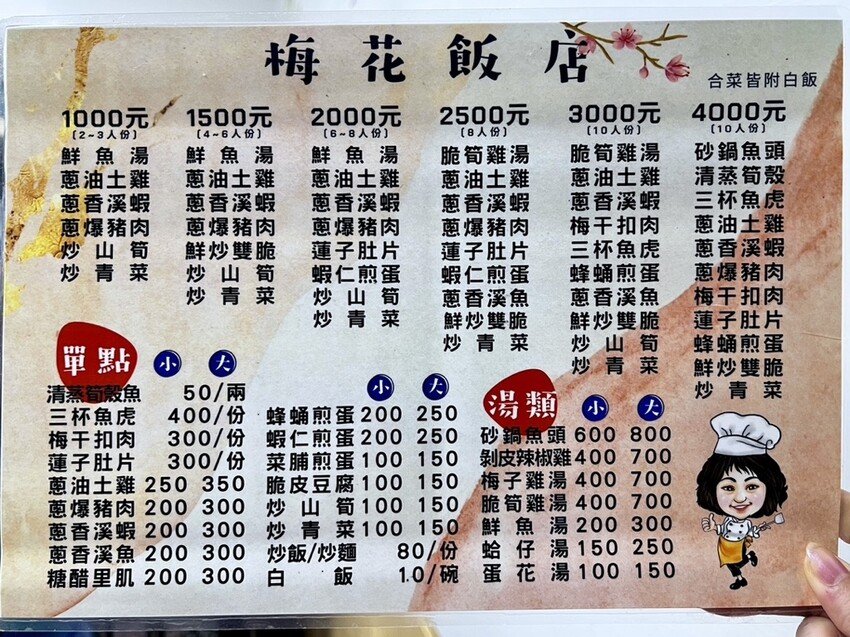 梅花飯店
合菜皆附白飯
1000元
(2~3人份)
鮮魚湯
蔥油土雞
蔥香溪蝦
蔥爆豬肉
炒山筍
炒青菜
1500元
(4~6人份)
鮮魚湯
蔥油土雞
蔥香溪蝦
蔥爆豬肉
鮮炒雙脆
炒山筍
炒青菜
2000元
(6~8人份)
鮮魚湯
蔥油土雞
蔥香溪蝦
蔥爆豬肉
蓮子肚片
蝦仁煎蛋
炒山筍
炒青菜
2500元
(8人份)
脆筍雞湯
蔥油土雞
蔥香溪蝦
蔥爆豬肉
蓮子肚片
蝦仁煎蛋
蔥香溪魚
鮮炒雙脆
炒青菜
3000元
(10人份)
脆筍雞湯
蔥油土雞
蔥香溪蝦
梅干扣肉
三杯魚虎
蜂蛹煎蛋
蔥香溪魚
鮮炒雙脆
炒山筍
炒青菜
4000元
(10人份)
砂鍋魚頭
清蒸筍殼
三杯魚虎
蔥油土雞
蔥香溪蝦
蔥爆豬肉
梅干扣肉
蓮子肚片
蜂蛹煎蛋
鮮炒雙脆
炒青菜
單點 小 大
清蒸筍殼魚 50/兩
三杯魚虎 400/份
梅干扣肉 300/份
蓮子肚片 300/份
蔥油土雞 250 350
蔥爆豬肉 200 300
蔥香溪蝦 200 300
蔥香溪魚 200 300
糖醋里肌 200 300
小 大
蜂蛹煎蛋 200 250
蝦仁煎蛋 200 250
菜脯煎蛋 100 150
脆皮豆腐 100 150
炒山筍 100 150
炒青菜 100 150
炒飯/炒麵 80/份
白飯 1.0/碗
湯類 小 大
砂鍋魚頭 600 800
剝皮辣椒雞 400 700
梅子雞湯 400 700
脆筍雞湯 400 700
鮮魚湯 200 300
蛤仔湯 150 250
蛋花湯 100 150